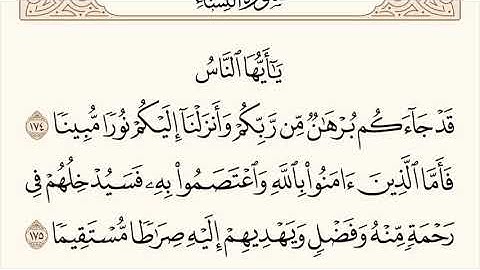 سُورَةُ النِّسَاءِ
يَـٰٓأَيُّهَا ٱلنَّاسُ
قَدْ جَآءَكُم بُرْهَـٰنٌ مِّن رَّبِّكُمْ وَأَنزَلْنَآ إِلَيْكُمْ نُورًا مُّبِينًا ١٧٤
فَأَمَّا ٱلَّذِينَ ءَامَنُوا۟ بِٱللَّهِ وَٱعْتَصَمُوا۟ بِهِۦ فَسَيُدْخِلُهُمْ فِى
رَحْمَةٍ مِّنْهُ وَفَضْلٍ وَيَهْدِيهِمْ إِلَيْهِ صِرَٰطًا مُّسْتَقِيمًا ١٧٥